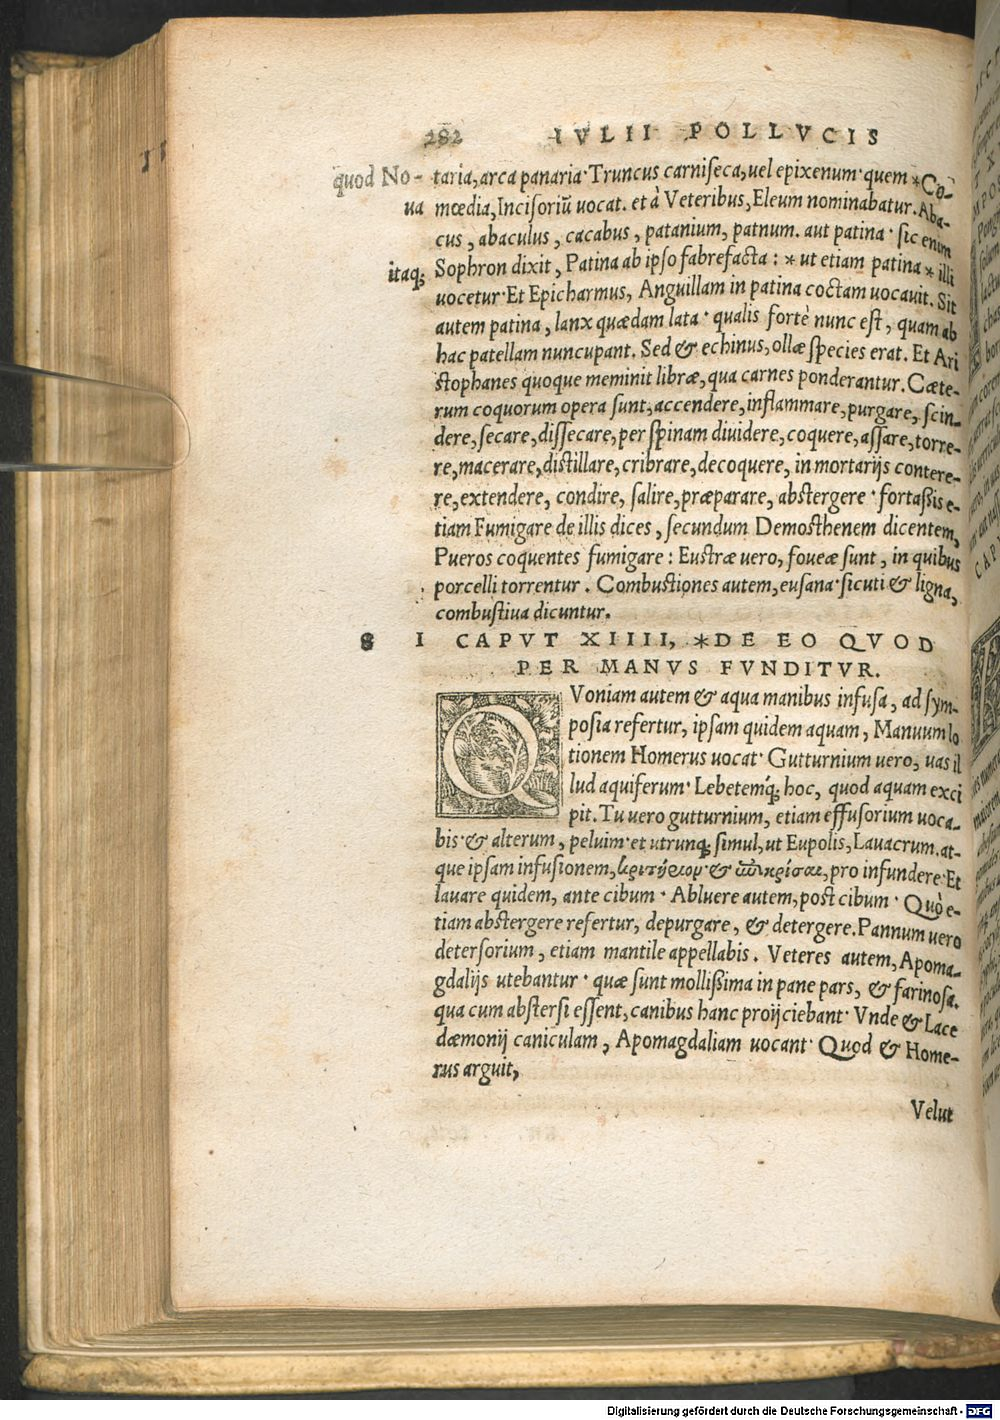 282 IVLII POLLVCIS
quod No- taria, arca panaria· Truncus carniseca, uel epixenum· quem *Co-
ua mœdia, Incisoriū uocat. et à Veteribus, Eleum nominabatur. Aba-
cus, abaculus, cacabus, patanium, patnum. aut patina· sic enim
itaq; Sophron dixit, Patina ab ipso fabrefacta : * ut etiam patina * illi
uocetur· Et Epicharmus, Anguillam in patina coctam uocauit. Sit
autem patina, lanx quædam lata· qualis fortè nunc est, quam ab
hac patellam nuncupant. Sed & echinus, ollæ species erat. Et Ari
stophanes quoque meminit libræ, qua carnes ponderantur. Cæte-
rum coquorum opera sunt, accendere, inflammare, purgare, scin-
dere, secare, dissecare, per spinam diuidere, coquere, assare, torre-
re, macerare, distillare, cribrare, decoquere, in mortarijs contere-
re, extendere, condire, salire, præparare, abstergere· fortaßis e-
tiam Fumigare de illis dices, secundum Demosthenem dicentem,
Pueros coquentes fumigare : Eustræ uero, foueæ sunt, in quibus
porcelli torrentur. Combustiones autem, eusana· sicuti & ligna,
combustiua dicuntur.
8 I CAPVT XIIII, *DE EO QVOD
PER MANVS FVNDITVR.
QVoniam autem & aqua manibus infusa, ad sym-
posia refertur, ipsam quidem aquam, Manuum lo
tionem Homerus uocat· Gutturnium uero, uas il
lud aquiferum· Lebetemq́; hoc, quod aquam exci
pit. Tu uero gutturnium, etiam effusorium uoca-
bis· & alterum, peluim· et utrunq; simul, ut Eupolis, Lauacrum. at-
que ipsam infusionem, & pro infundere· Et
lauare quidem, ante cibum· Abluere autem, post cibum· Quò e-
tiam abstergere refertur, depurgare, & detergere. Pannum uero
detersorium, etiam mantile appellabis. Veteres autem, Apoma-
gdalijs utebantur· quæ sunt mollißima in pane pars, & farinosa.
qua cum abstersi essent, canibus hanc proijciebant· Vnde & Lace
dæmonij caniculam, Apomagdaliam uocant· Quod & Home-
rus arguit,
Velut
Digitalisierung gefördert durch die Deutsche Forschungsgemeinschaft - DFG